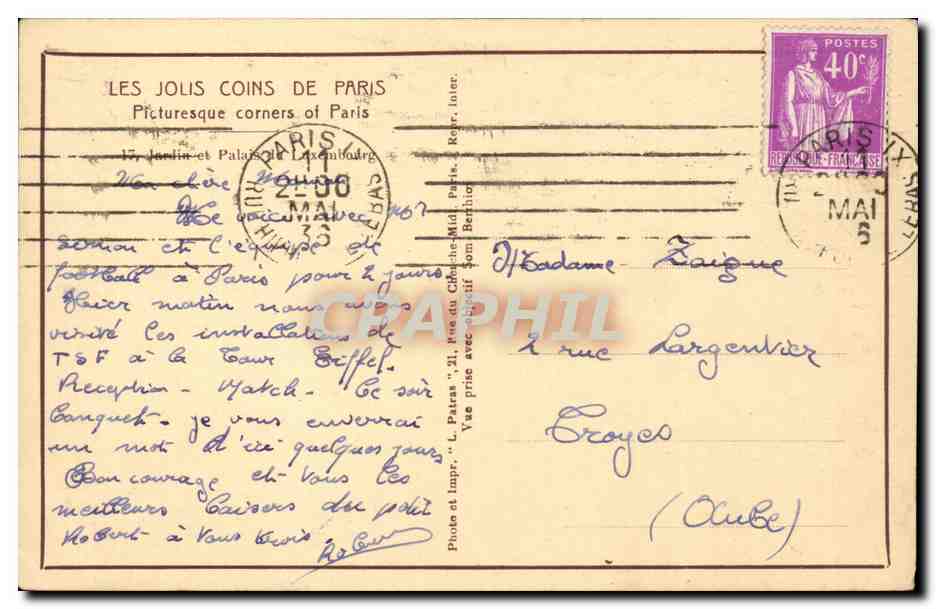 LES JOLIS COINS DE PARIS
Picturesque corners of Paris
17. Jardin et Palais du Luxembourg
Mon chère
Me voici avec
et l'équipe de
football à Paris pour 2 jours
Hier matin nous avons
visité les installations de
TSF à la Tour Eiffel.
Reception - Match - Ce soir
banquet - je vous enverrai
un mot d'ici quelques jours
Bon courage et vous les
meilleurs baisers du petit
Robert à vous trois.
Robert
Photo et Impr. "L. Patras", 21, Rue du Cherche-Midi, Paris. Repr. Inter.
Vue prise avec objectif Som Berthiot
POSTES
40c
REPUBLIQUE FRANÇAISE
PARIS IX
MAI
PARIS IX
MAI
Madame Zaigue
2 rue Largentier
Troyes
(Aube)
CRAPHIL